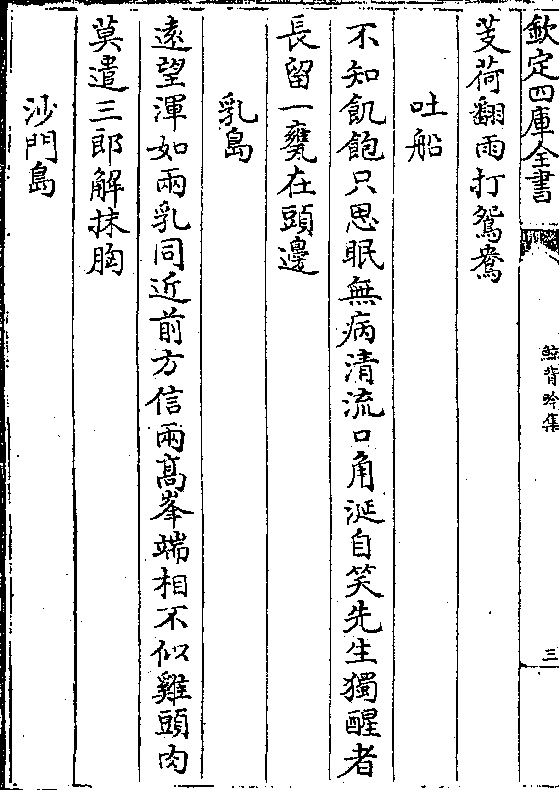 欽定四庫全書
鯨背吟集
三
芰荷翻雨打鴛鴦
吐船
不知飢飽只思眠無病清流口角涎自笑先生獨醒者
長留一甕在頭邊
乳島
遠望渾如兩乳同近前方信兩髙峯端相不似雞頭肉
莫遣三郎解抹胸
沙門島